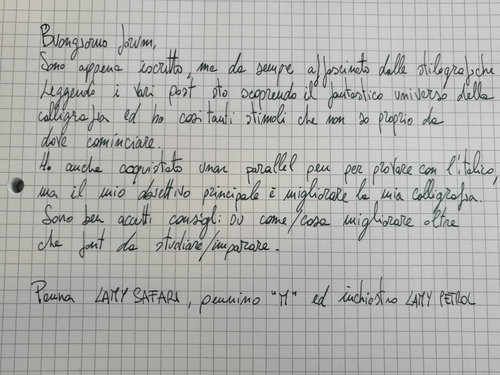 Buongiorno forum,
Sono appena iscritto, ma da sempre affascinato dalle stilografiche
Leggendo i vari post sto scoprendo il fantastico universo della
calligrafia ed ho così tanti stimoli che non so proprio da
dove cominciare.
Ho anche acquistato una parallel pen per provare con l'italico,
ma il mio obiettivo principale è migliorare la mia calligrafia.
Sono ben accetti consigli su come/cosa migliorare oltre
che font da studiare/imparare.
Penna LAMY SAFARI, pennino "M" ed inchiostro LAMY PETROL